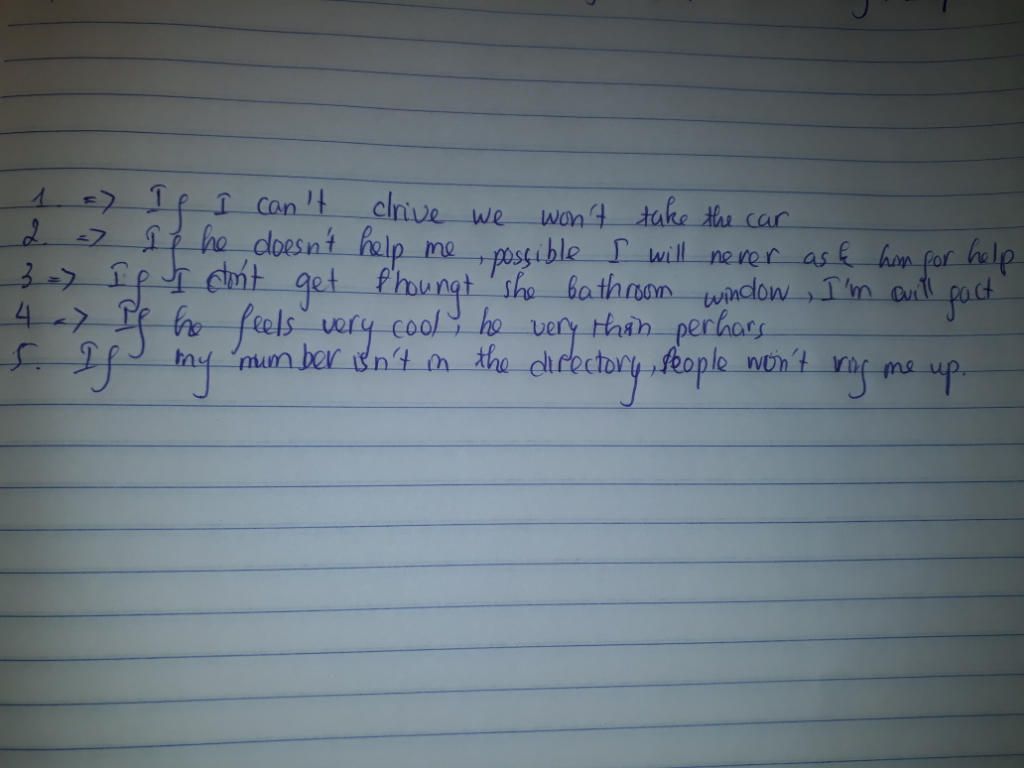 1. => If I can't drive we won't take the car
2. => If he doesn't help me, possible I will never ask him for help
3 => If I don't get thoungt she bathroom window, I'm
4 => If he feels very cool, he very thin perhars
5. If my number isn't in the directory, people won't me up.